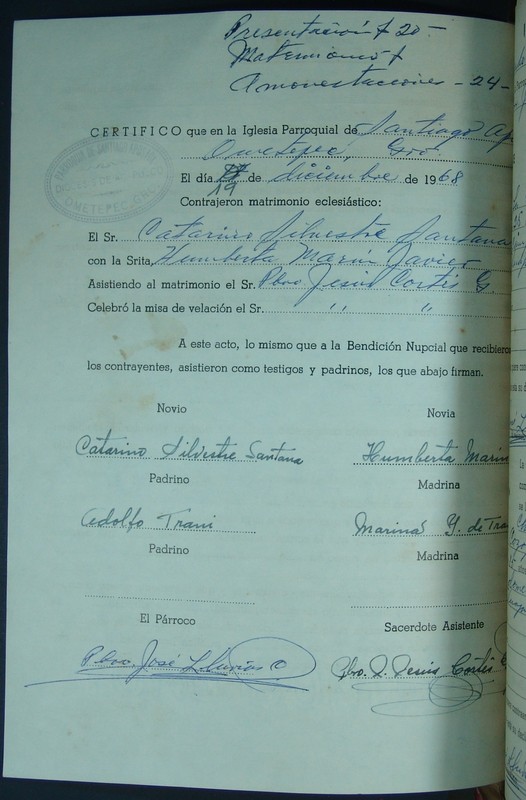 Presentación f 20 -
Matrimonios f
Amonestaciones - 24 -
CERTIFICO que en la Iglesia Parroquial de Santiago Ap
Ometepec, Gro.
El día 19 de diciembre de 1968
Contrajeron matrimonio eclesiástico:
OMETEPEC, GRO.
El Sr. Catarino Silvestre Santana
con la Srita. Humberta Marin Javier
Asistiendo al matrimonio el Sr. Pbro Jesús Cortés G.
Celebró la misa de velación el Sr. " "
A este acto, lo mismo que a la Bendición Nupcial que recibieron
los contrayentes, asistieron como testigos y padrinos, los que abajo firman.
Novio Novia
Catarino Silvestre Santana Humberta Marin
Padrino Madrina
Adolfo Trani Marina Y. de Tra
Padrino Madrina
El Párroco Sacerdote Asistente
Pbro. José Lluvias O Pbro. J. Jesús Cortés G